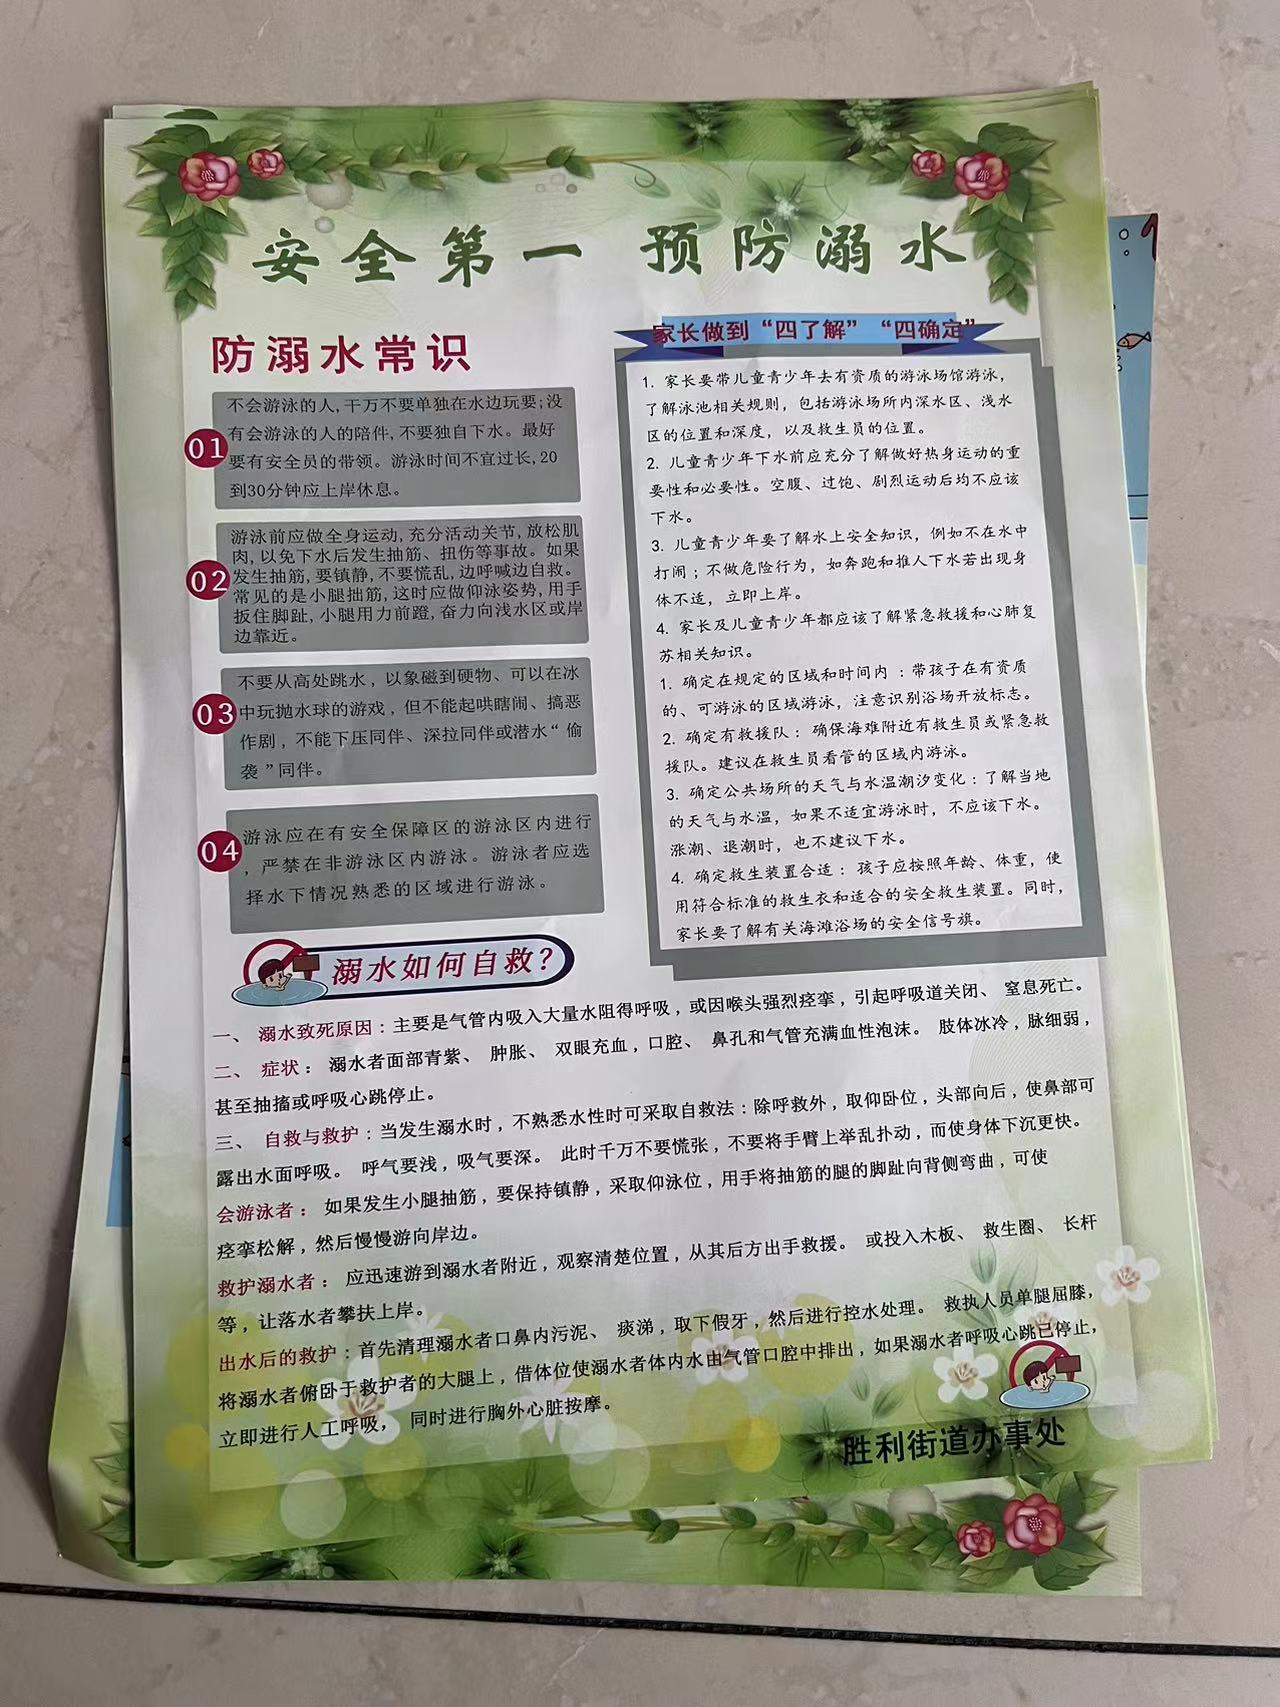 安全第一 预防溺水
防溺水常识
01
不会游泳的人,千万不要单独在水边玩耍;没
有会游泳的人的陪伴,不要独自下水。最好
要有安全员的带领。游泳时间不宜过长,20
到30分钟应上岸休息。
02
游泳前应做全身运动,充分活动关节,放松肌
肉,以免下水后发生抽筋、扭伤等事故。如果
发生抽筋,要镇静,不要慌乱,边呼喊边自救。
常见的是小腿拙筋,这时应做仰泳姿势,用手
扳住脚趾,小腿用力前蹬,奋力向浅水区或岸
边靠近。
03
不要从高处跳水，以象磁到硬物、可以在冰
中玩抛水球的游戏，但不能起哄瞎闹、搞恶
作剧，不能下压同伴、深拉同伴或潜水“偷
袭”同伴。
04
游泳应在有安全保障区的游泳区内进行
，严禁在非游泳区内游泳。游泳者应选
择水下情况熟悉的区域进行游泳。
家长做到“四了解”“四确定”
1. 家长要带儿童青少年去有资质的游泳场馆游泳，
了解泳池相关规则，包括游泳场所内深水区、浅水
区的位置和深度，以及救生员的位置。
2. 儿童青少年下水前应充分了解做好热身运动的重
要性和必要性。空腹、过饱、剧烈运动后均不应该
下水。
3. 儿童青少年要了解水上安全知识，例如不在水中
打闹；不做危险行为，如奔跑和推人下水若出现身
体不适，立即上岸。
4. 家长及儿童青少年都应该了解紧急救援和心肺复
苏相关知识。
1. 确定在规定的区域和时间内：带孩子在有资质
的、可游泳的区域游泳，注意识别浴场开放标志。
2. 确定有救援队：确保海难附近有救生员或紧急救
援队。建议在救生员看管的区域内游泳。
3. 确定公共场所的天气与水温潮汐变化：了解当地
的天气与水温，如果不适宜游泳时，不应该下水。
涨潮、退潮时，也不建议下水。
4. 确定救生装置合适：孩子应按照年龄、体重，使
用符合标准的救生衣和适合的安全救生装置。同时，
家长要了解有关海滩浴场的安全信号旗。
溺水如何自救?
一、 溺水致死原因：主要是气管内吸入大量水阻得呼吸，或因喉头强烈痉挛，引起呼吸道关闭、窒息死亡。
二、 症状： 溺水者面部青紫、 肿胀、 双眼充血，口腔、 鼻孔和气管充满血性泡沫。 肢体冰冷，脉细弱，
甚至抽搐或呼吸心跳停止。
三、 自救与救护：当发生溺水时，不熟悉水性时可采取自救法：除呼救外，取仰卧位，头部向后，使鼻部可
露出水面呼吸。 呼气要浅，吸气要深。 此时千万不要慌张，不要将手臂上举乱扑动，而使身体下沉更快。
会游泳者： 如果发生小腿抽筋，要保持镇静，采取仰泳位，用手将抽筋的腿的脚趾向背侧弯曲，可使
痉挛松解，然后慢慢游向岸边。
救护溺水者： 应迅速游到溺水者附近，观察清楚位置，从其后方出手救援。 或投入木板、 救生圈、 长杆
等，让落水者攀扶上岸。
出水后的救护：首先清理溺水者口鼻内污泥、 痰涕，取下假牙，然后进行控水处理。 救执人员单腿屈膝，
将溺水者俯卧于救护者的大腿上，借体位使溺水者体内水由气管口腔中排出，如果溺水者呼吸心跳已停止，
立即进行人工呼吸， 同时进行胸外心脏按摩。
胜利街道办事处